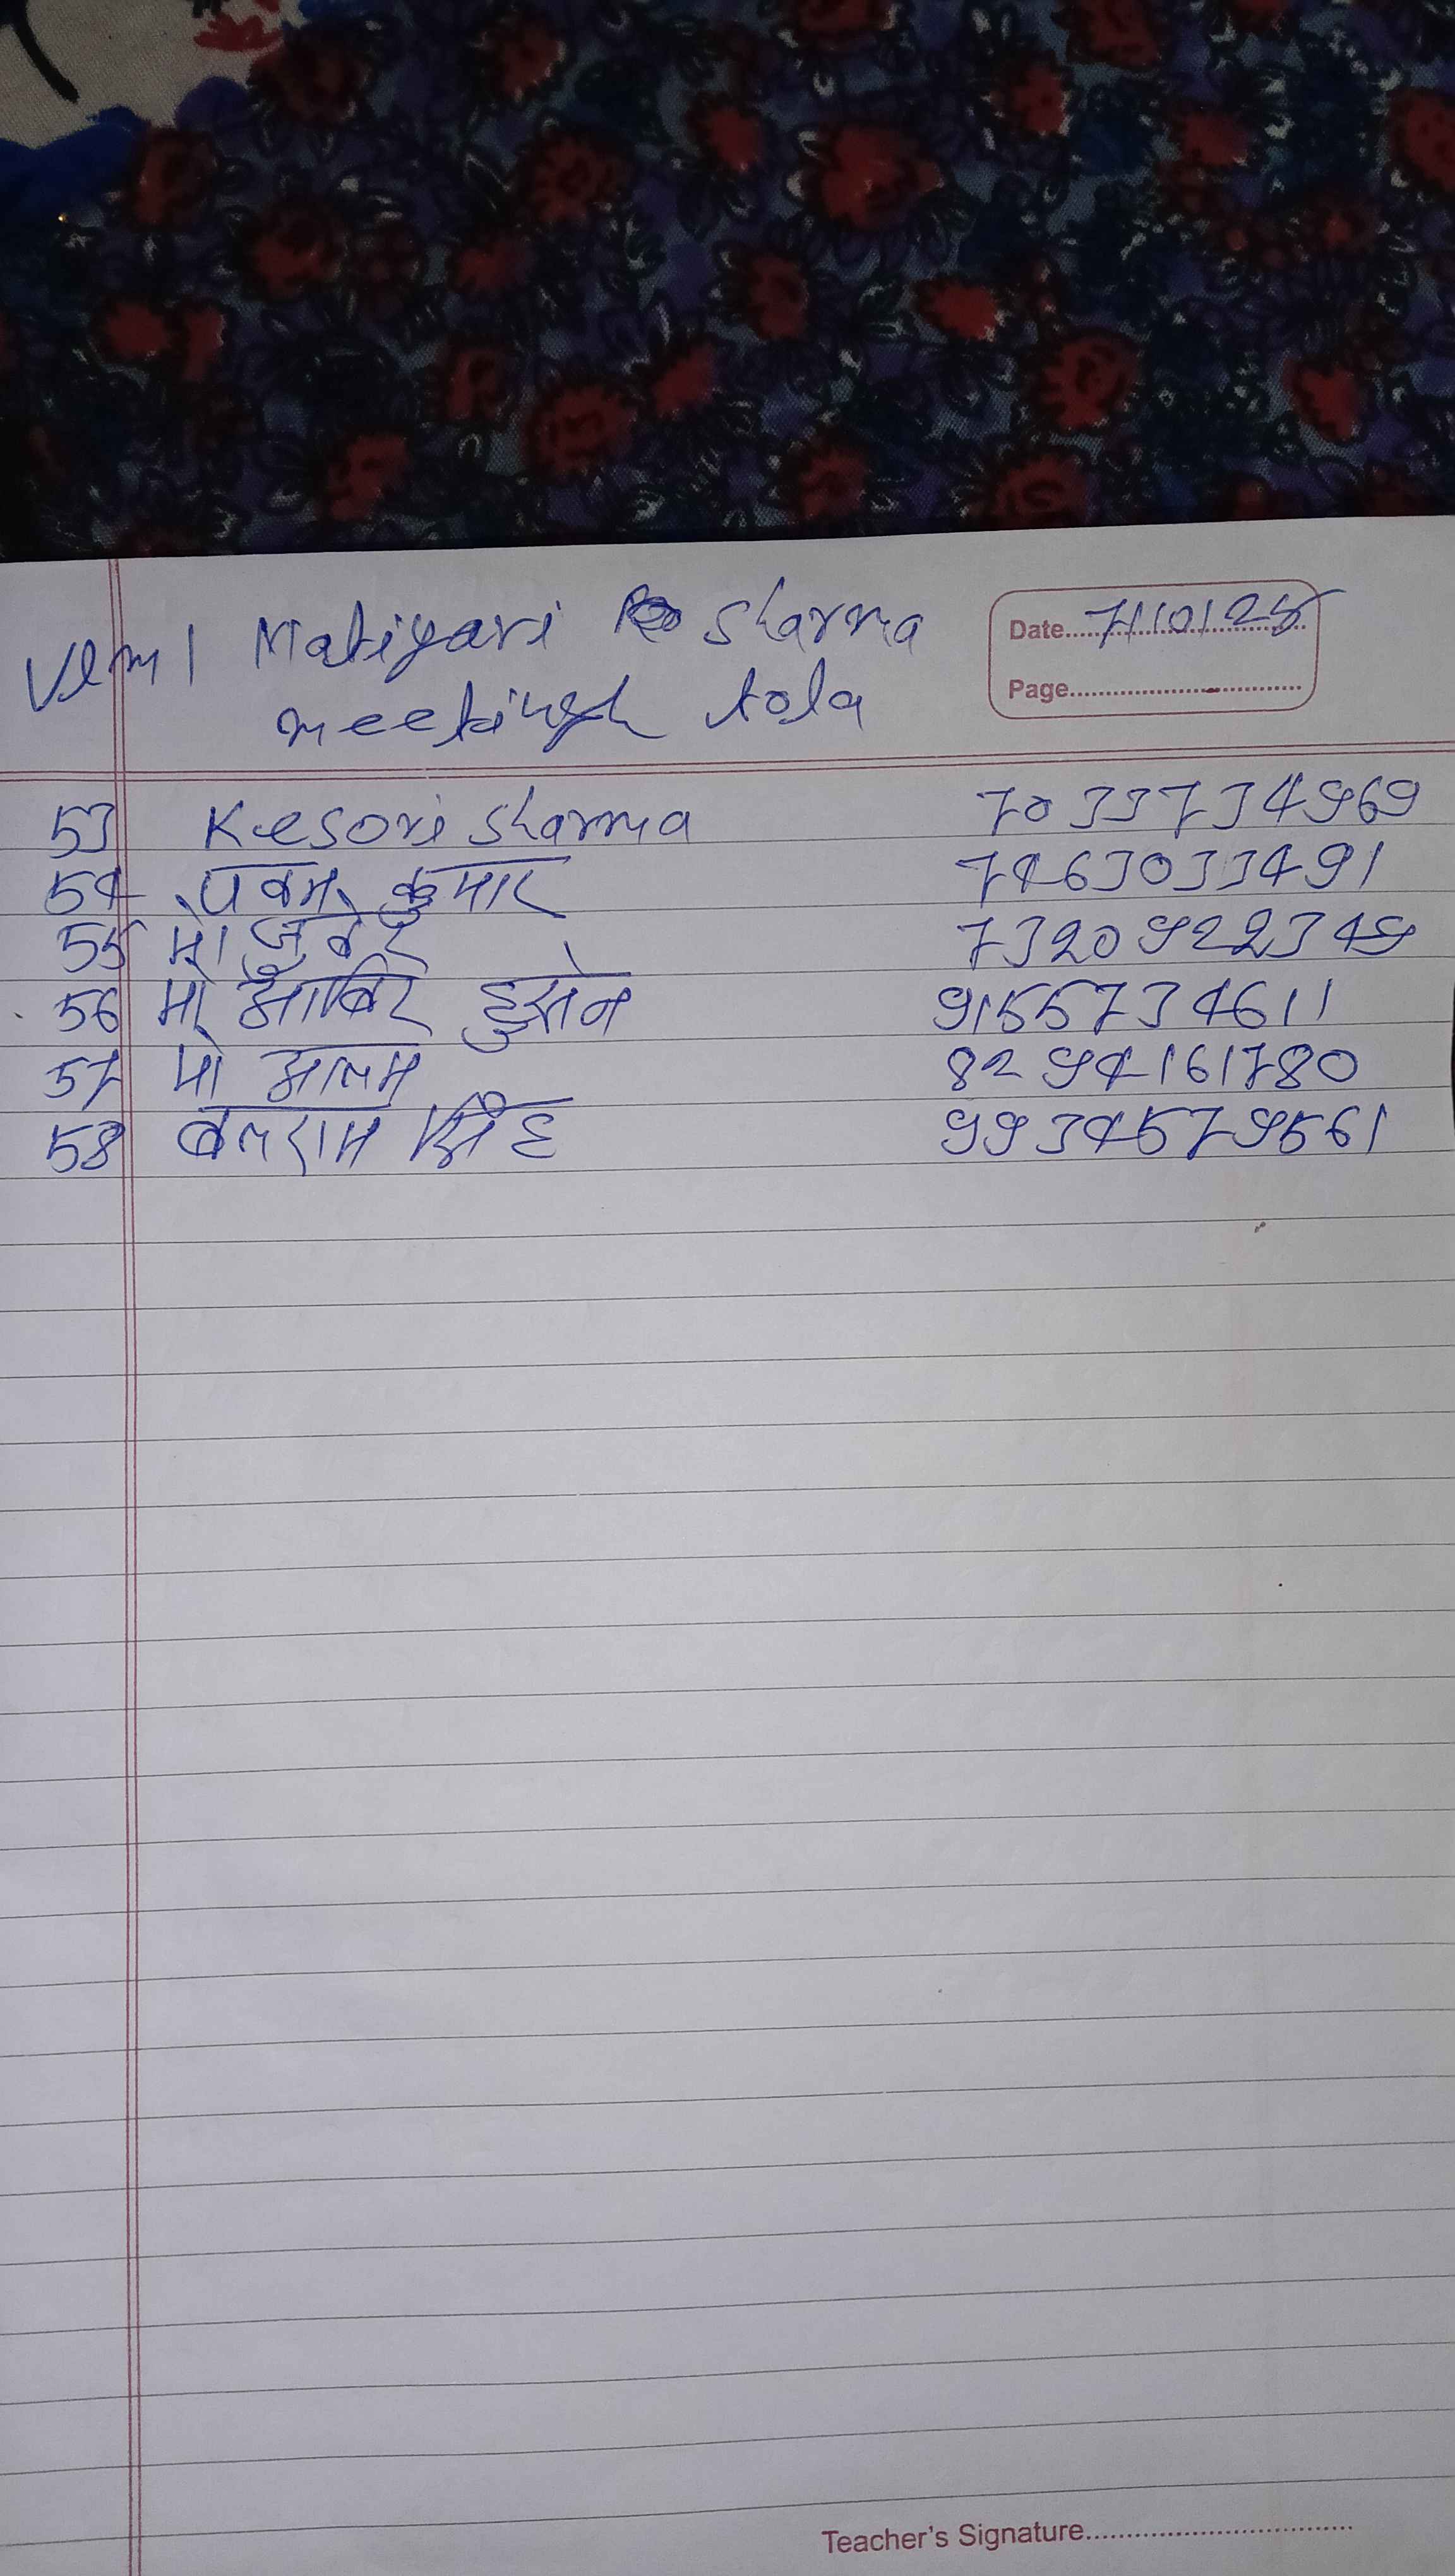 Vlm 1 Matiyari sharma
meetingh tola
Date 7/10/25
Page
53 Kesori sharma 7033734969
54 पवन कुमार 7463033491
55 मो जुबेर 7320922349
56 मो आबिर हुसेन 9155734611
57 मो आलम 8294161780
58 बलराम सिंह 9934579561
Teacher's Signature